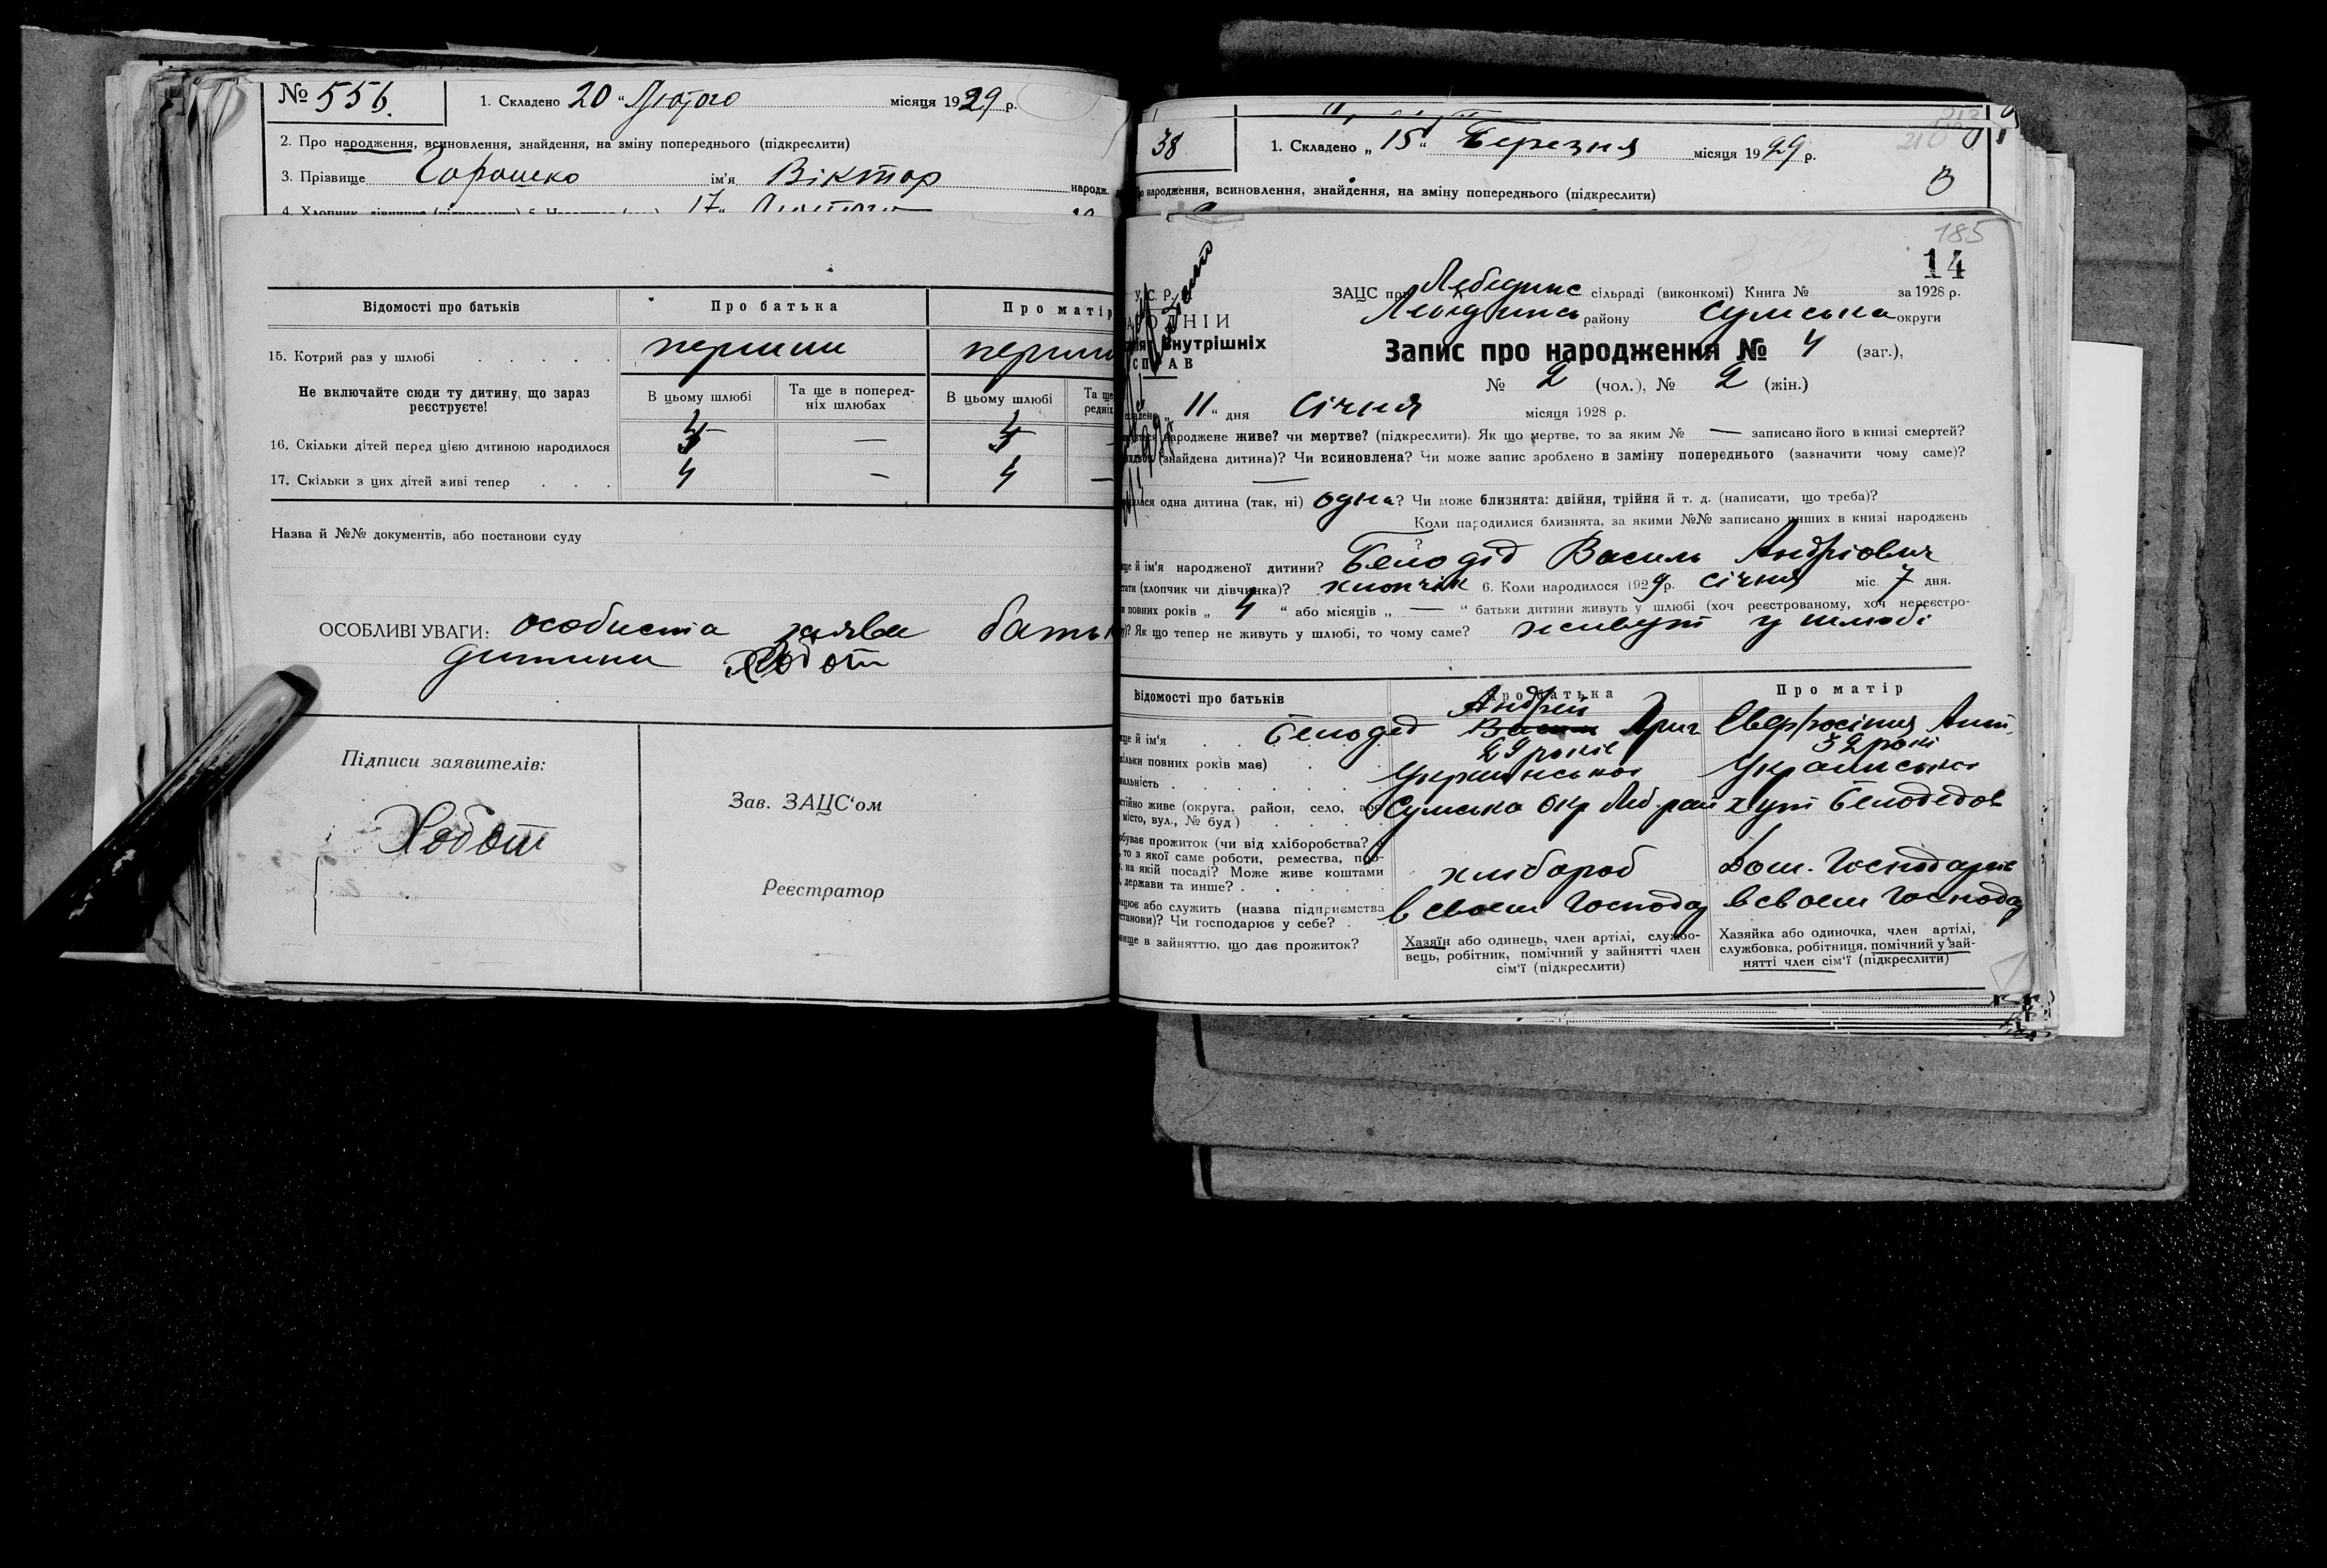 № 556.
1. Складено 20 " Лютого місяця 1929 р.
2. Про народження, всиновлення, знайдення, на зміну попереднього (підкреслити)
3. Прізвище Горошко ім'я Віктор народж.
4. Хлопчик, дівчинка (підкреслити) 5. 17 " Лютого
Відомості про батьків
Про батька
Про матір
15. Котрий раз у шлюбі . . . . .
перший
Не включайте сюди ту дитину, що зараз
реєструєте!
В цьому шлюбі
Та ще в поперед-
ніх шлюбах
В цьому шлюбі
Та ще
редніх
16. Скільки дітей перед цією дитиною народилося
—
17. Скільки з цих дітей живі тепер . . .
4
—
4
—
Назва й №№ документів, або постанови суду
ОСОБЛИВІ УВАГИ: особиста заява
дитини Хобот
Підписи заявителів:
Хобот
Зав. ЗАЦС'ом
Реєстратор
38
1. Складено „ 15 " Березня місяця 1929 р.
народження, всиновлення, знайдення, на зміну попереднього (підкреслити)
В
185
14
У. С. Р.
ЗАЦС при Лебединс сільраді (виконкомі) Книга № за 1928 р.
району Сумська округи
внутрішніх
СПРАВ
Запис про народження № 4 (заг.),
№ 2 (чол.), № 2 (жін.)
„ 11 " дня Січня місяця 1928 р.
народжене живе? чи мертве? (підкреслити). Як що мертве, то за яким № — записано його в книзі смертей?
(знайдена дитина)? Чи всиновлена? Чи може запис зроблено в заміну попереднього (зазначити чому саме)?
—
одна дитина (так, ні) одна? Чи може близнята: двійня, трійня й т. д. (написати, що треба)?
Коли народилися близнята, за якими №№ записано инших в книзі народжень
?
й ім'я народженої дитини? Белодід Василь Андріович
(хлопчик чи дівчинка)? хлопчик 6. Коли народилося 1929 р. січня міс. 7 дня.
повних років „ 4 " або місяців „ — " батьки дитини живуть у шлюбі (хоч реєстрованому, хоч нереєстро-
? Як що тепер не живуть у шлюбі, то чому саме? живут у шлюбі
Відомості про батьків
Про батька
Про матір
й ім'я . . Белодед Андрей Григ
Евфросіния Ант.
повних років має) 29 років
32 рокі
Української
Української
живе (округа, район, село, або
місто, вул., № буд.)
Сумська Окр Леб. рай хут Белодедов
прожиток (чи від хліборобства?
то з якої саме роботи, ремества, про-
на якій посаді? Може живе коштами
держави та инше?
хлібороб
Дом. Господарст
або служить (назва підприємства
установи)? Чи господарює у себе?
в своем Господар
в своем Господар
в зайняттю, що дає прожиток?
Хазяїн або одинець, член артілі, службо-
вець, робітник, помічний у зайнятті член
сім'ї (підкреслити)
Хазяйка або одиночка, член артілі,
службовка, робітниця, помічний у зай-
нятті член сім'ї (підкреслити)